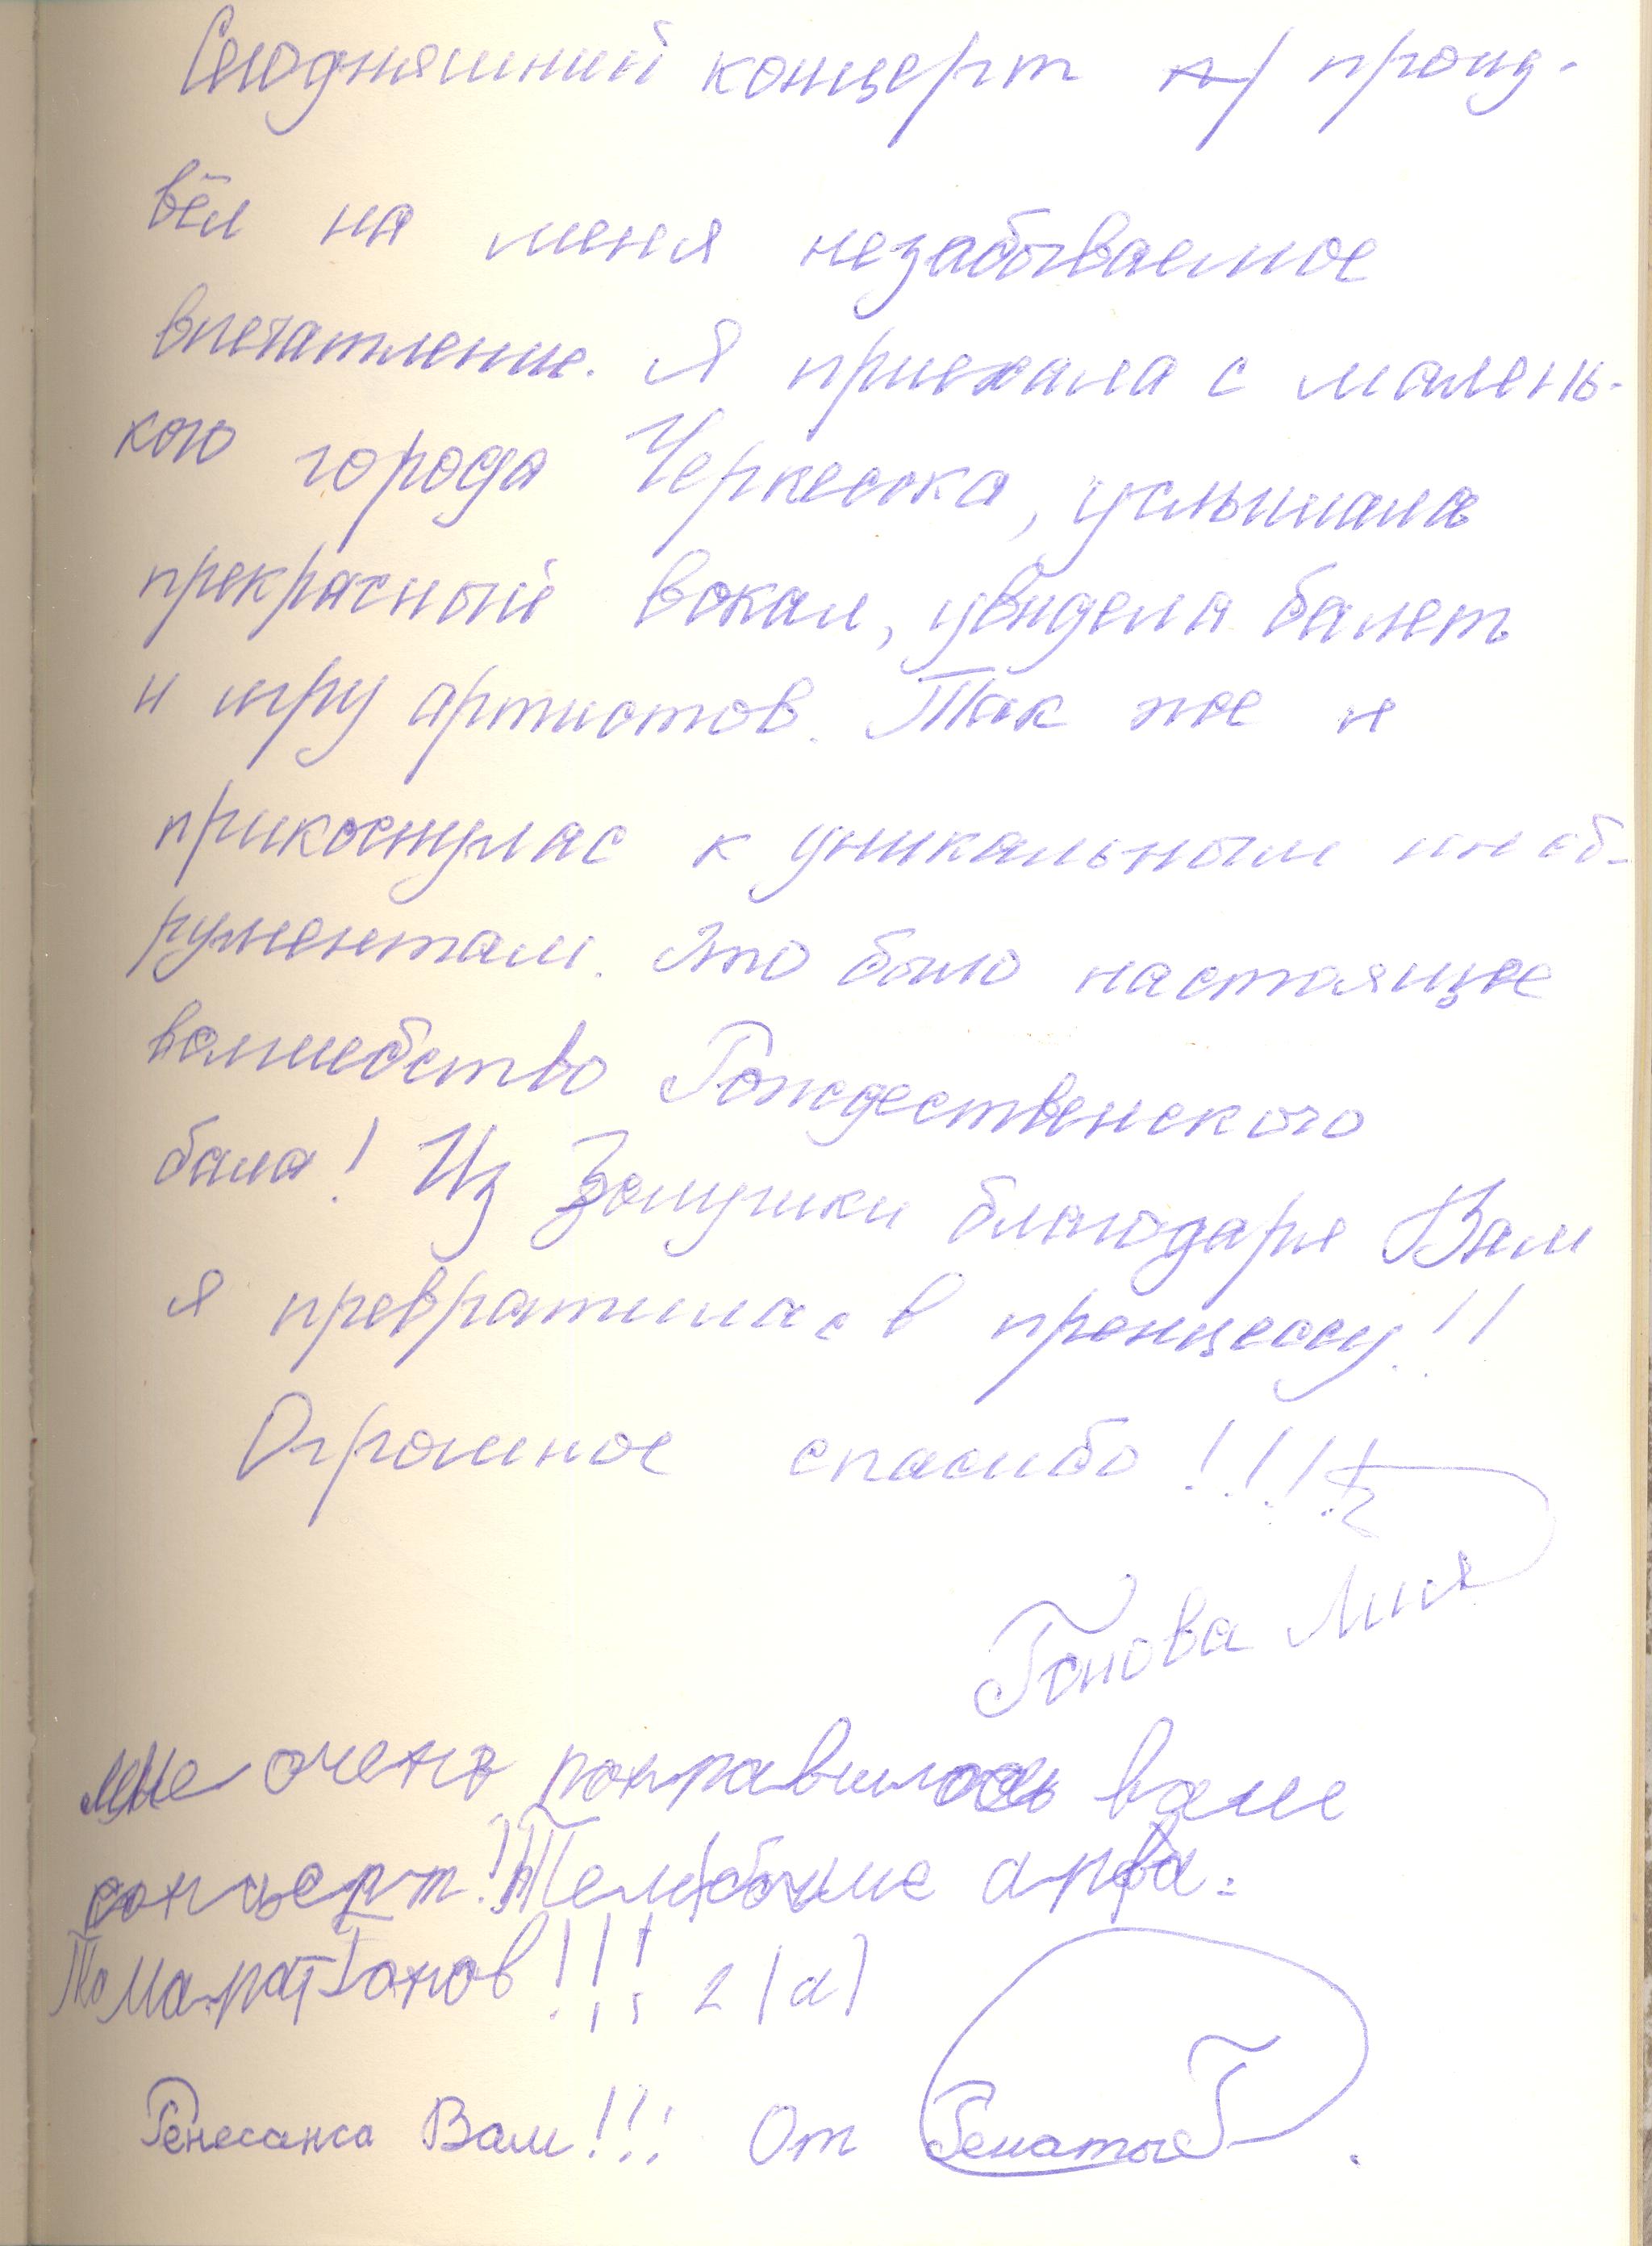 Сегодняшний концерт произ-
вёл на меня незабываемое
впечатление. Я приехала с малень-
кого города Черкесска, услышала
прекрасный вокал, увидела балет
и игру артистов. Так же я
прикоснулас к уникальным инст-
рументам. Это было настоящее
волшебство Рождественского
бала! Из Золушки благодаря Вам
я превратилас в принцессу!!!
Огромное спасибо!!!!
Гонова Лия
мне очень понравилось ваше
концерт!
Марат Гонов!!! 2 (а)
Ренесанса Вам!!! От Ренаты Г.